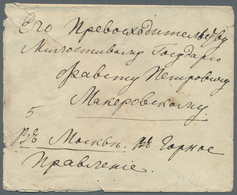 Его Превосходительству
Милостивому Государю
Петровичу
Макеровскому
5
Въ Москвѣ. Въ Горное
Правленіе.